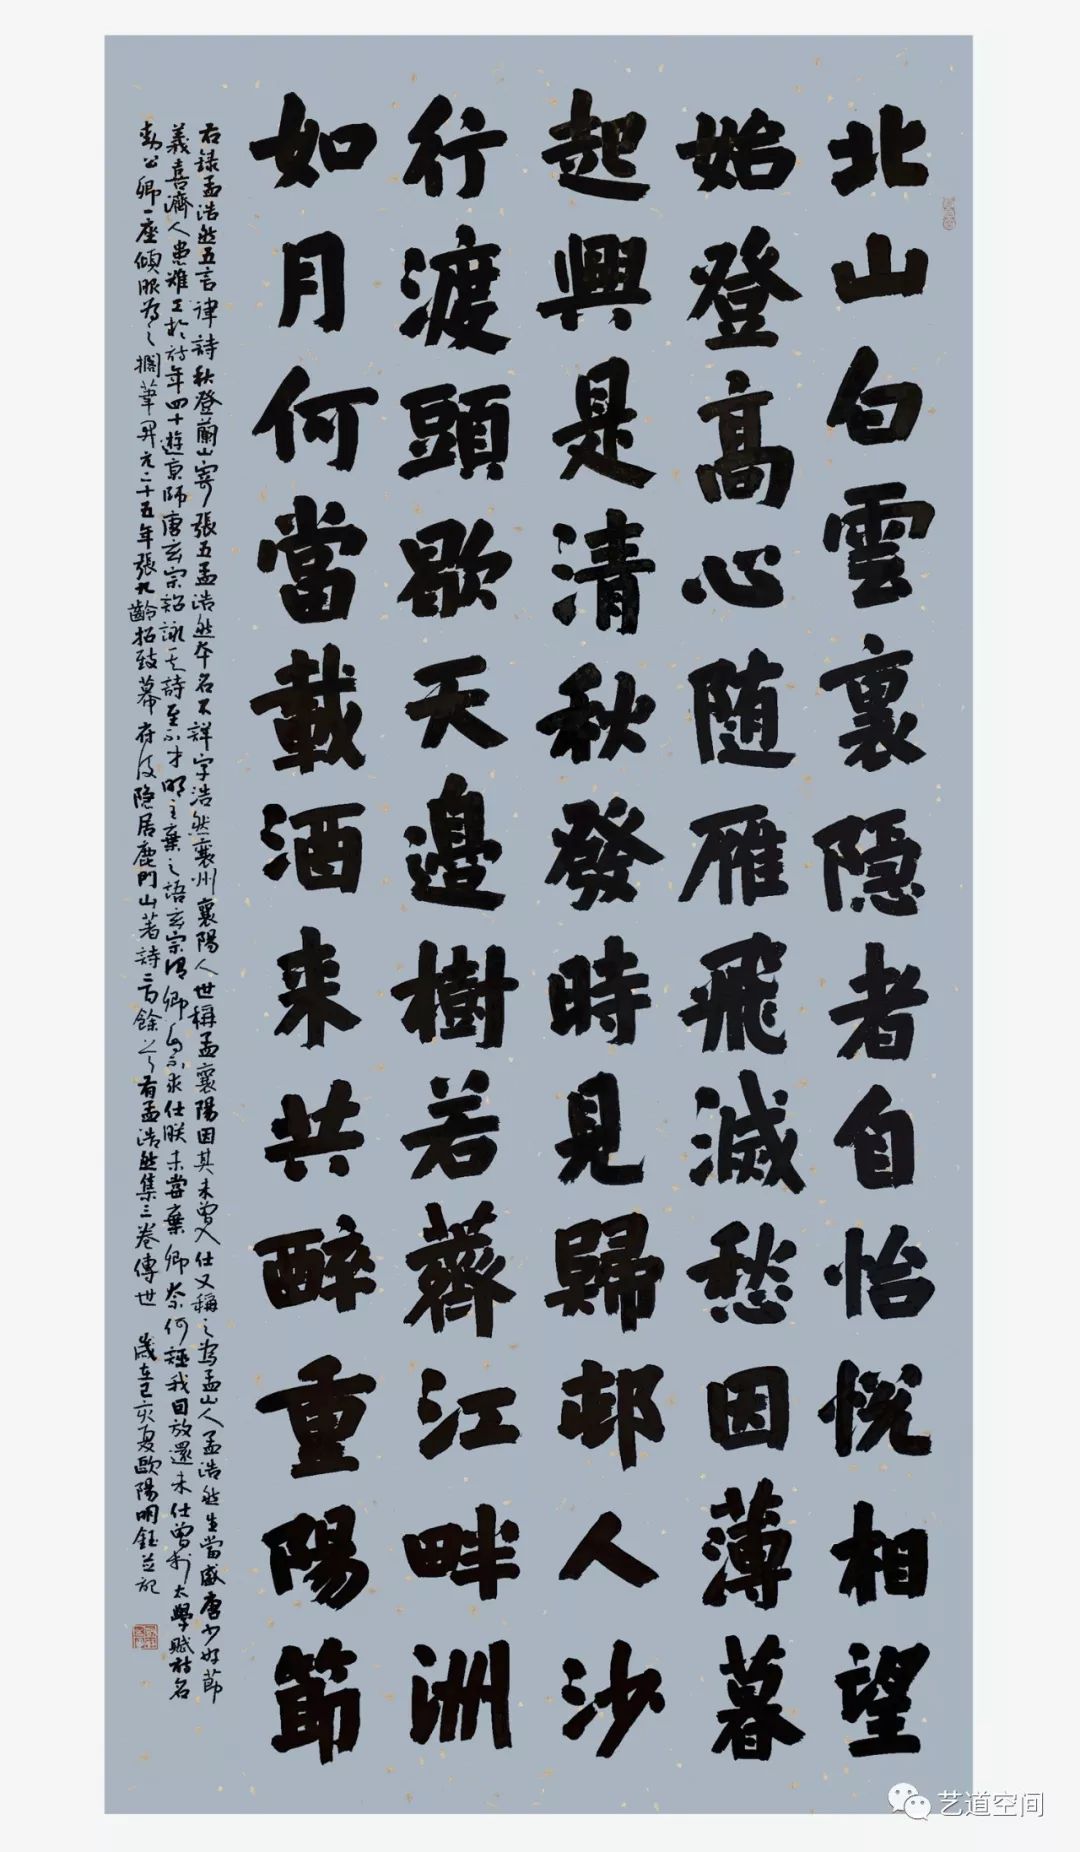 北山白雲裏隱者自怡悦相望
始登高心随雁飛滅愁因薄暮
起興是清秋發時見歸邨人沙
行渡頭歇天邊樹若薺江畔洲
如月何當載酒来共醉重陽節
右録孟浩然五言律詩秋登蘭山寄張五孟浩然本名不詳字浩然襄州襄陽人世稱孟襄陽因其未曾入仕又稱之為孟山人孟浩然生當盛唐少好節
義喜濟人患難工於詩年四十遊京師唐玄宗詔詠其詩至不才明主棄之語玄宗謂卿自不求仕朕未嘗棄卿奈何誣我因放還未仕曾於太學賦詩名
動公卿一座傾服為之擱筆開元二十五年張九齡招致幕府後隐居鹿門山著詩二百餘首有孟浩然集三卷傳世 歲在己亥夏歐陽明鈺並記
艺道空间